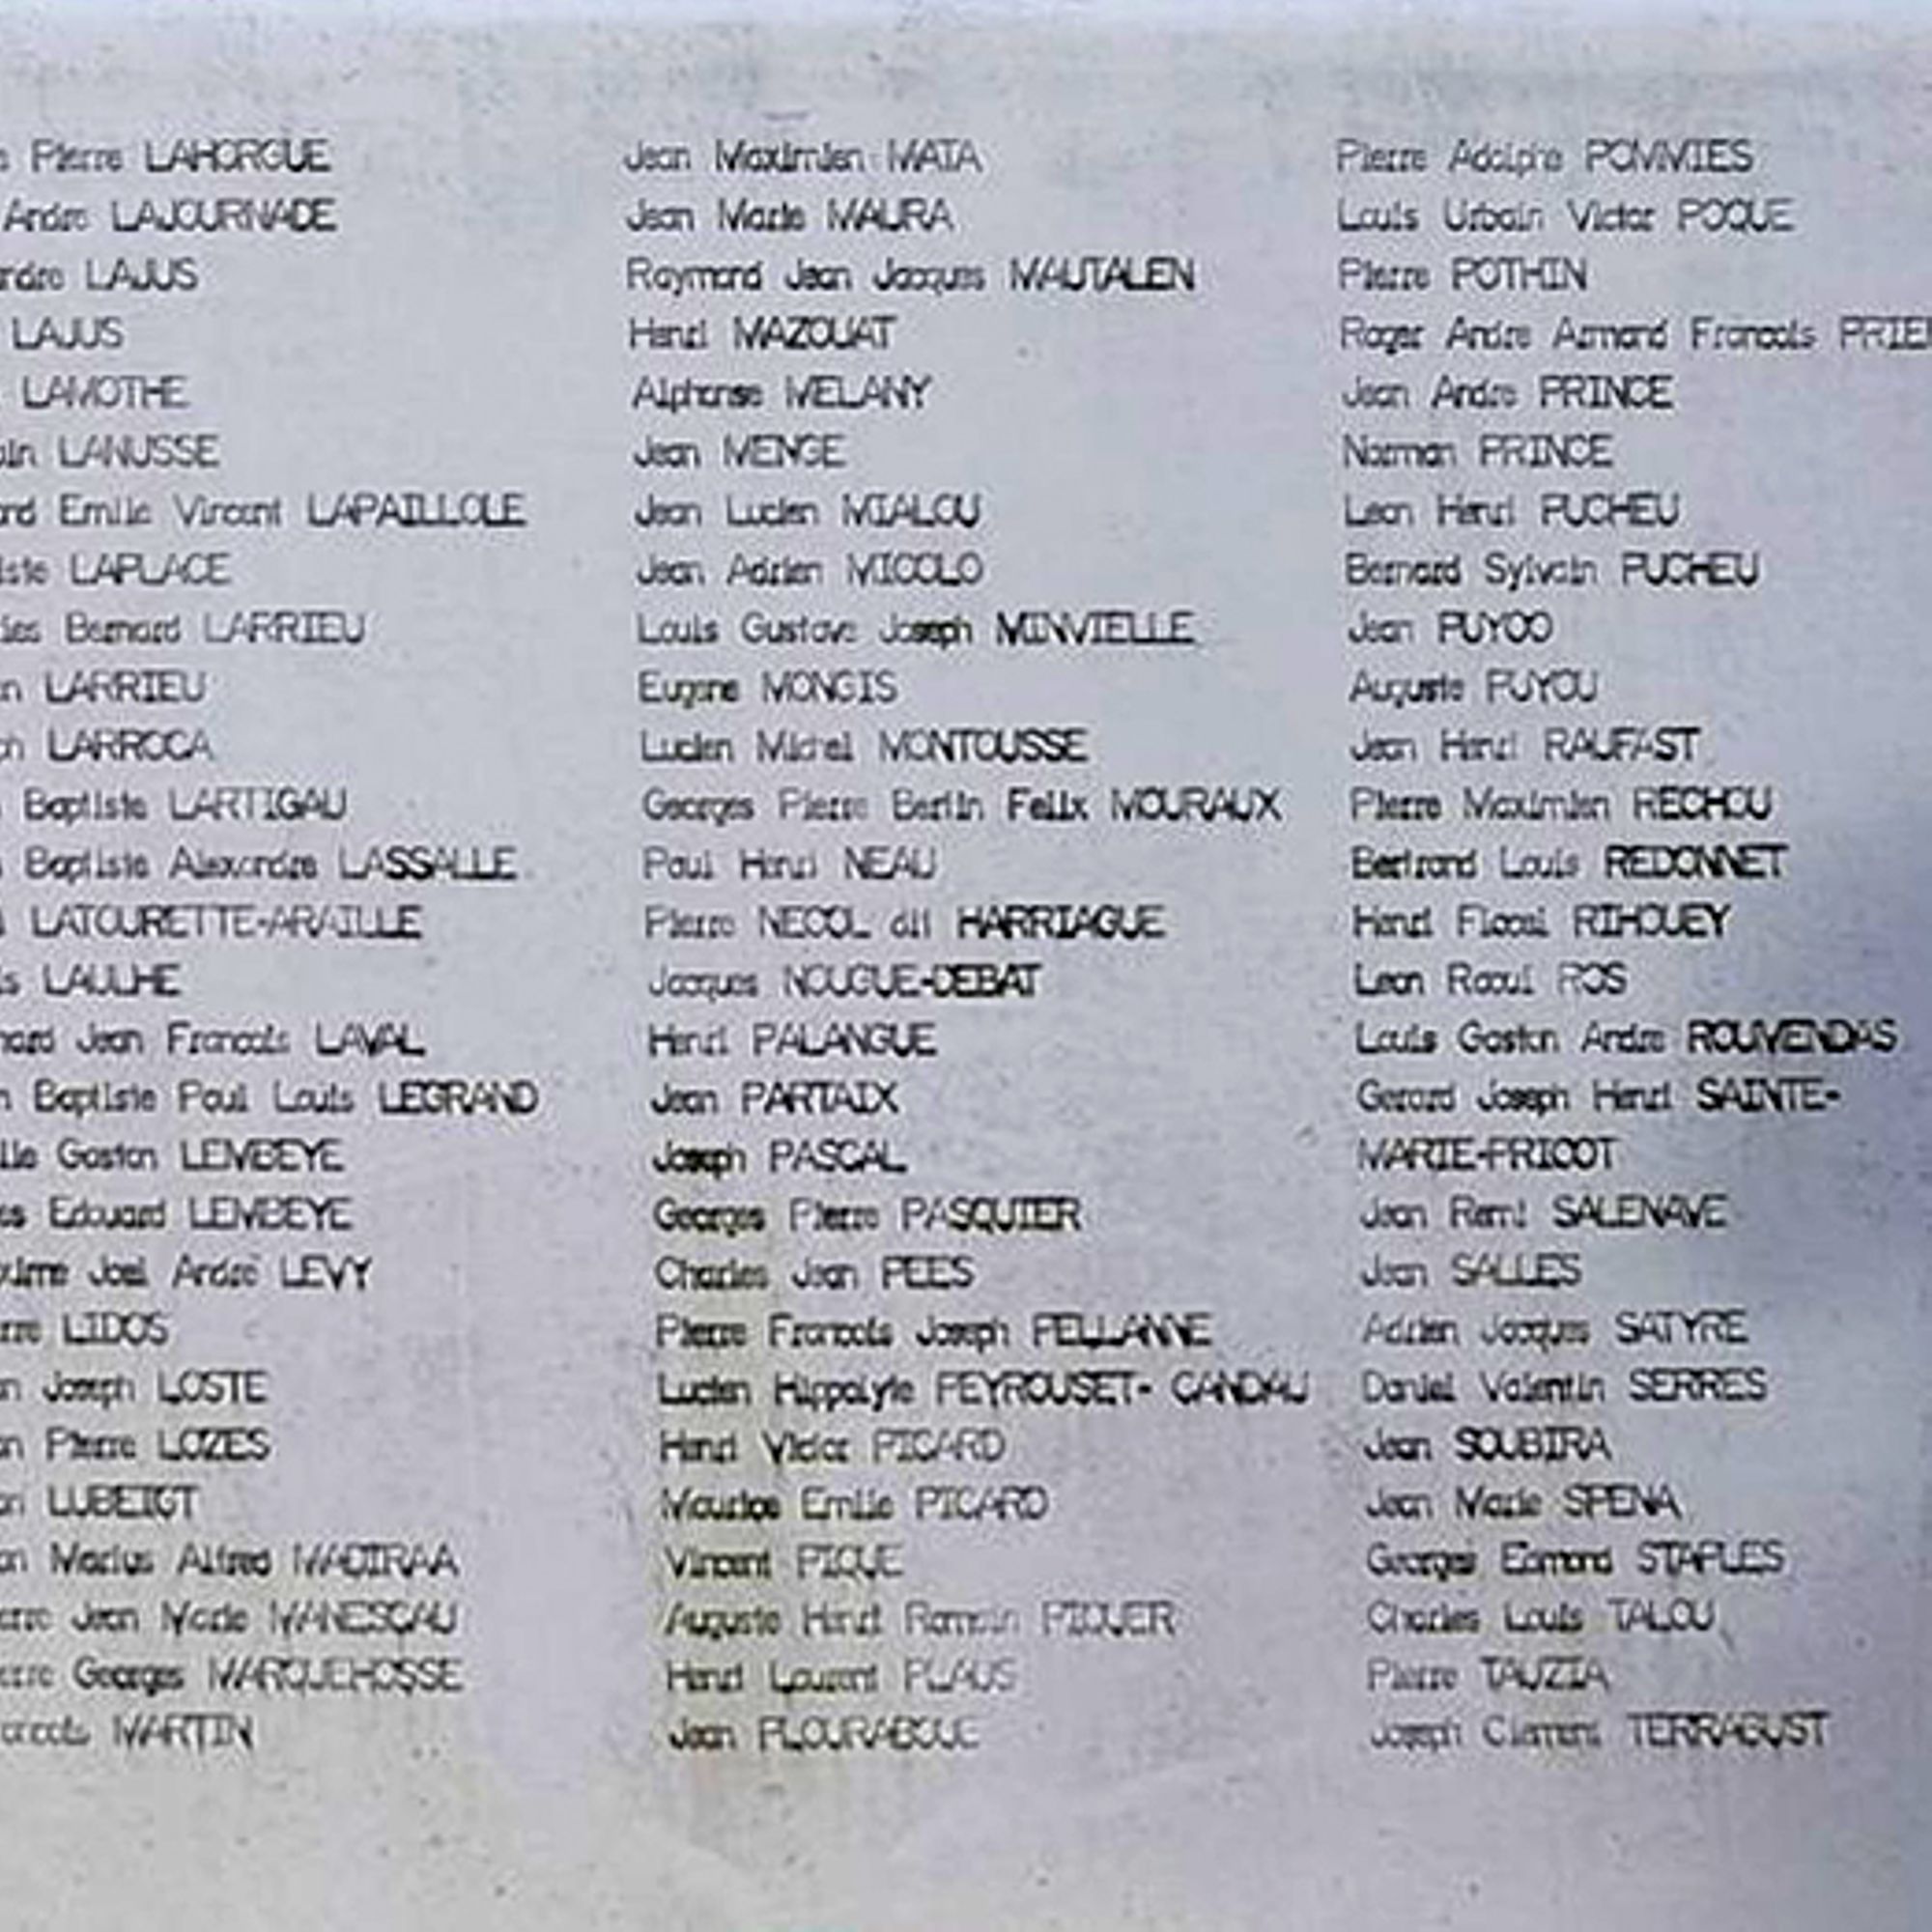 Pierre LAHORGUE
Andre LAJOURNADE
LAJUS
LAJUS
LAMOTHE
LANUSSE
Emile Vincent LAPAILLOLE
LAPLACE
Bernard LARRIEU
LARRIEU
LARROCA
Baptiste LARTIGAU
Baptiste Alexandre LASSALLE
LATOURETTE-ARAILLE
LAULHE
Jean Francois LAVAL
Baptiste Paul Louis LEGRAND
Gaston LEMBEYE
Edouard LEMBEYE
Joel André LEVY
LIDOS
Joseph LOSTE
Pierre LOZES
LUBEIGT
Marius Alfred MADIRAA
Jean Marie MANESCAU
Georges MARQUEHOSSE
MARTIN
Jean Maximien MATA
Jean Marie MAURA
Raymond Jean Jacques MAUTALEN
Henri MAZOUAT
Alphonse MELANY
Jean MENGE
Jean Lucien MIALOU
Jean Adrien MICOLO
Louis Gustave Joseph MINVIELLE
Eugene MONGIS
Lucien Michel MONTOUSSE
Georges Pierre Bertin Felix MOURAUX
Paul Henri NEAU
Pierre NECOL dit HARRIAGUE
Jacques NOUGUE-DEBAT
Henri PALANGUE
Jean PARTAIX
Joseph PASCAL
Georges Pierre PASQUIER
Charles Jean PEES
Pierre Francois Joseph PELLANNE
Lucien Hippolyte PEYROUSET- CANDAU
Henri Victor PICARD
Maurice Emile PICARD
Vincent PIQUE
Auguste Henri Romain PIQUER
Henri Laurent PLAUS
Jean PLOURABOUE
Pierre Adolphe POMMIES
Louis Urbain Victor POQUE
Pierre POTHIN
Roger Andre Armand Francois
Jean Andre PRINCE
Norman PRINCE
Leon Henri PUCHEU
Bernard Sylvain PUCHEU
Jean PUYOO
Auguste PUYOU
Jean Henri RAUFAST
Pierre Maximien RECHOU
Bertrand Louis REDONNET
Henri Floceal RIHOUEY
Leon Raoul ROS
Louis Gaston Andre ROUMENDAS
Gerard Joseph Henri SAINTE-
MARIE-FRICOT
Jean Remi SALENAVE
Jean SALLES
Adrien Jacques SATYRE
Daniel Valentin SERRES
Jean SOUBIRA
Jean Marie SPENA
Georges Edmond STAPLES
Charles Louis TALOU
Pierre TAUZIA
Joseph Clement TERRAGUST